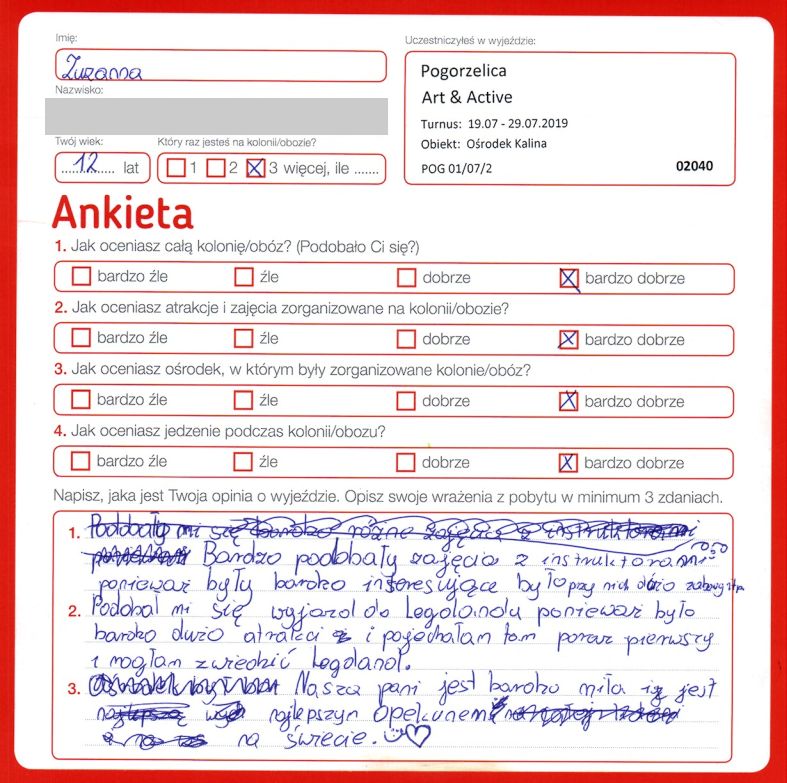 Imię:
Zuzanna
Nazwisko:
Twój wiek:
12 lat
Który raz jesteś na kolonii/obozie?
1 2 3 więcej, ile .......
Uczestniczyłeś w wyjeździe:
Pogorzelica
Art & Active
Turnus: 19.07 - 29.07.2019
Obiekt: Ośrodek Kalina
POG 01/07/2 02040
Ankieta
1. Jak oceniasz całą kolonię/obóz? (Podobało Ci się?)
bardzo źle źle dobrze bardzo dobrze
2. Jak oceniasz atrakcje i zajęcia zorganizowane na kolonii/obozie?
bardzo źle źle dobrze bardzo dobrze
3. Jak oceniasz ośrodek, w którym były zorganizowane kolonie/obóz?
bardzo źle źle dobrze bardzo dobrze
4. Jak oceniasz jedzenie podczas kolonii/obozu?
bardzo źle źle dobrze bardzo dobrze
Napisz, jaka jest Twoja opinia o wyjeździe. Opisz swoje wrażenia z pobytu w minimum 3 zdaniach.
1. Podobały mi się bardzo różne zajęcia z instruktorami
Bardzo podobały zajęcia z instruktorami
ponieważ były bardzo interesujące było przy nich dużo zabawy itp
2. Podobał mi się wyjazd do Legolandu ponieważ było
bardzo dużo atrakci i pojechałam tam poraz pierwszy
i mogłam zwiedzić Legoland.
3. Nasza pani jest bardzo miła iż jest
najlepszym opekunem
na świecie.